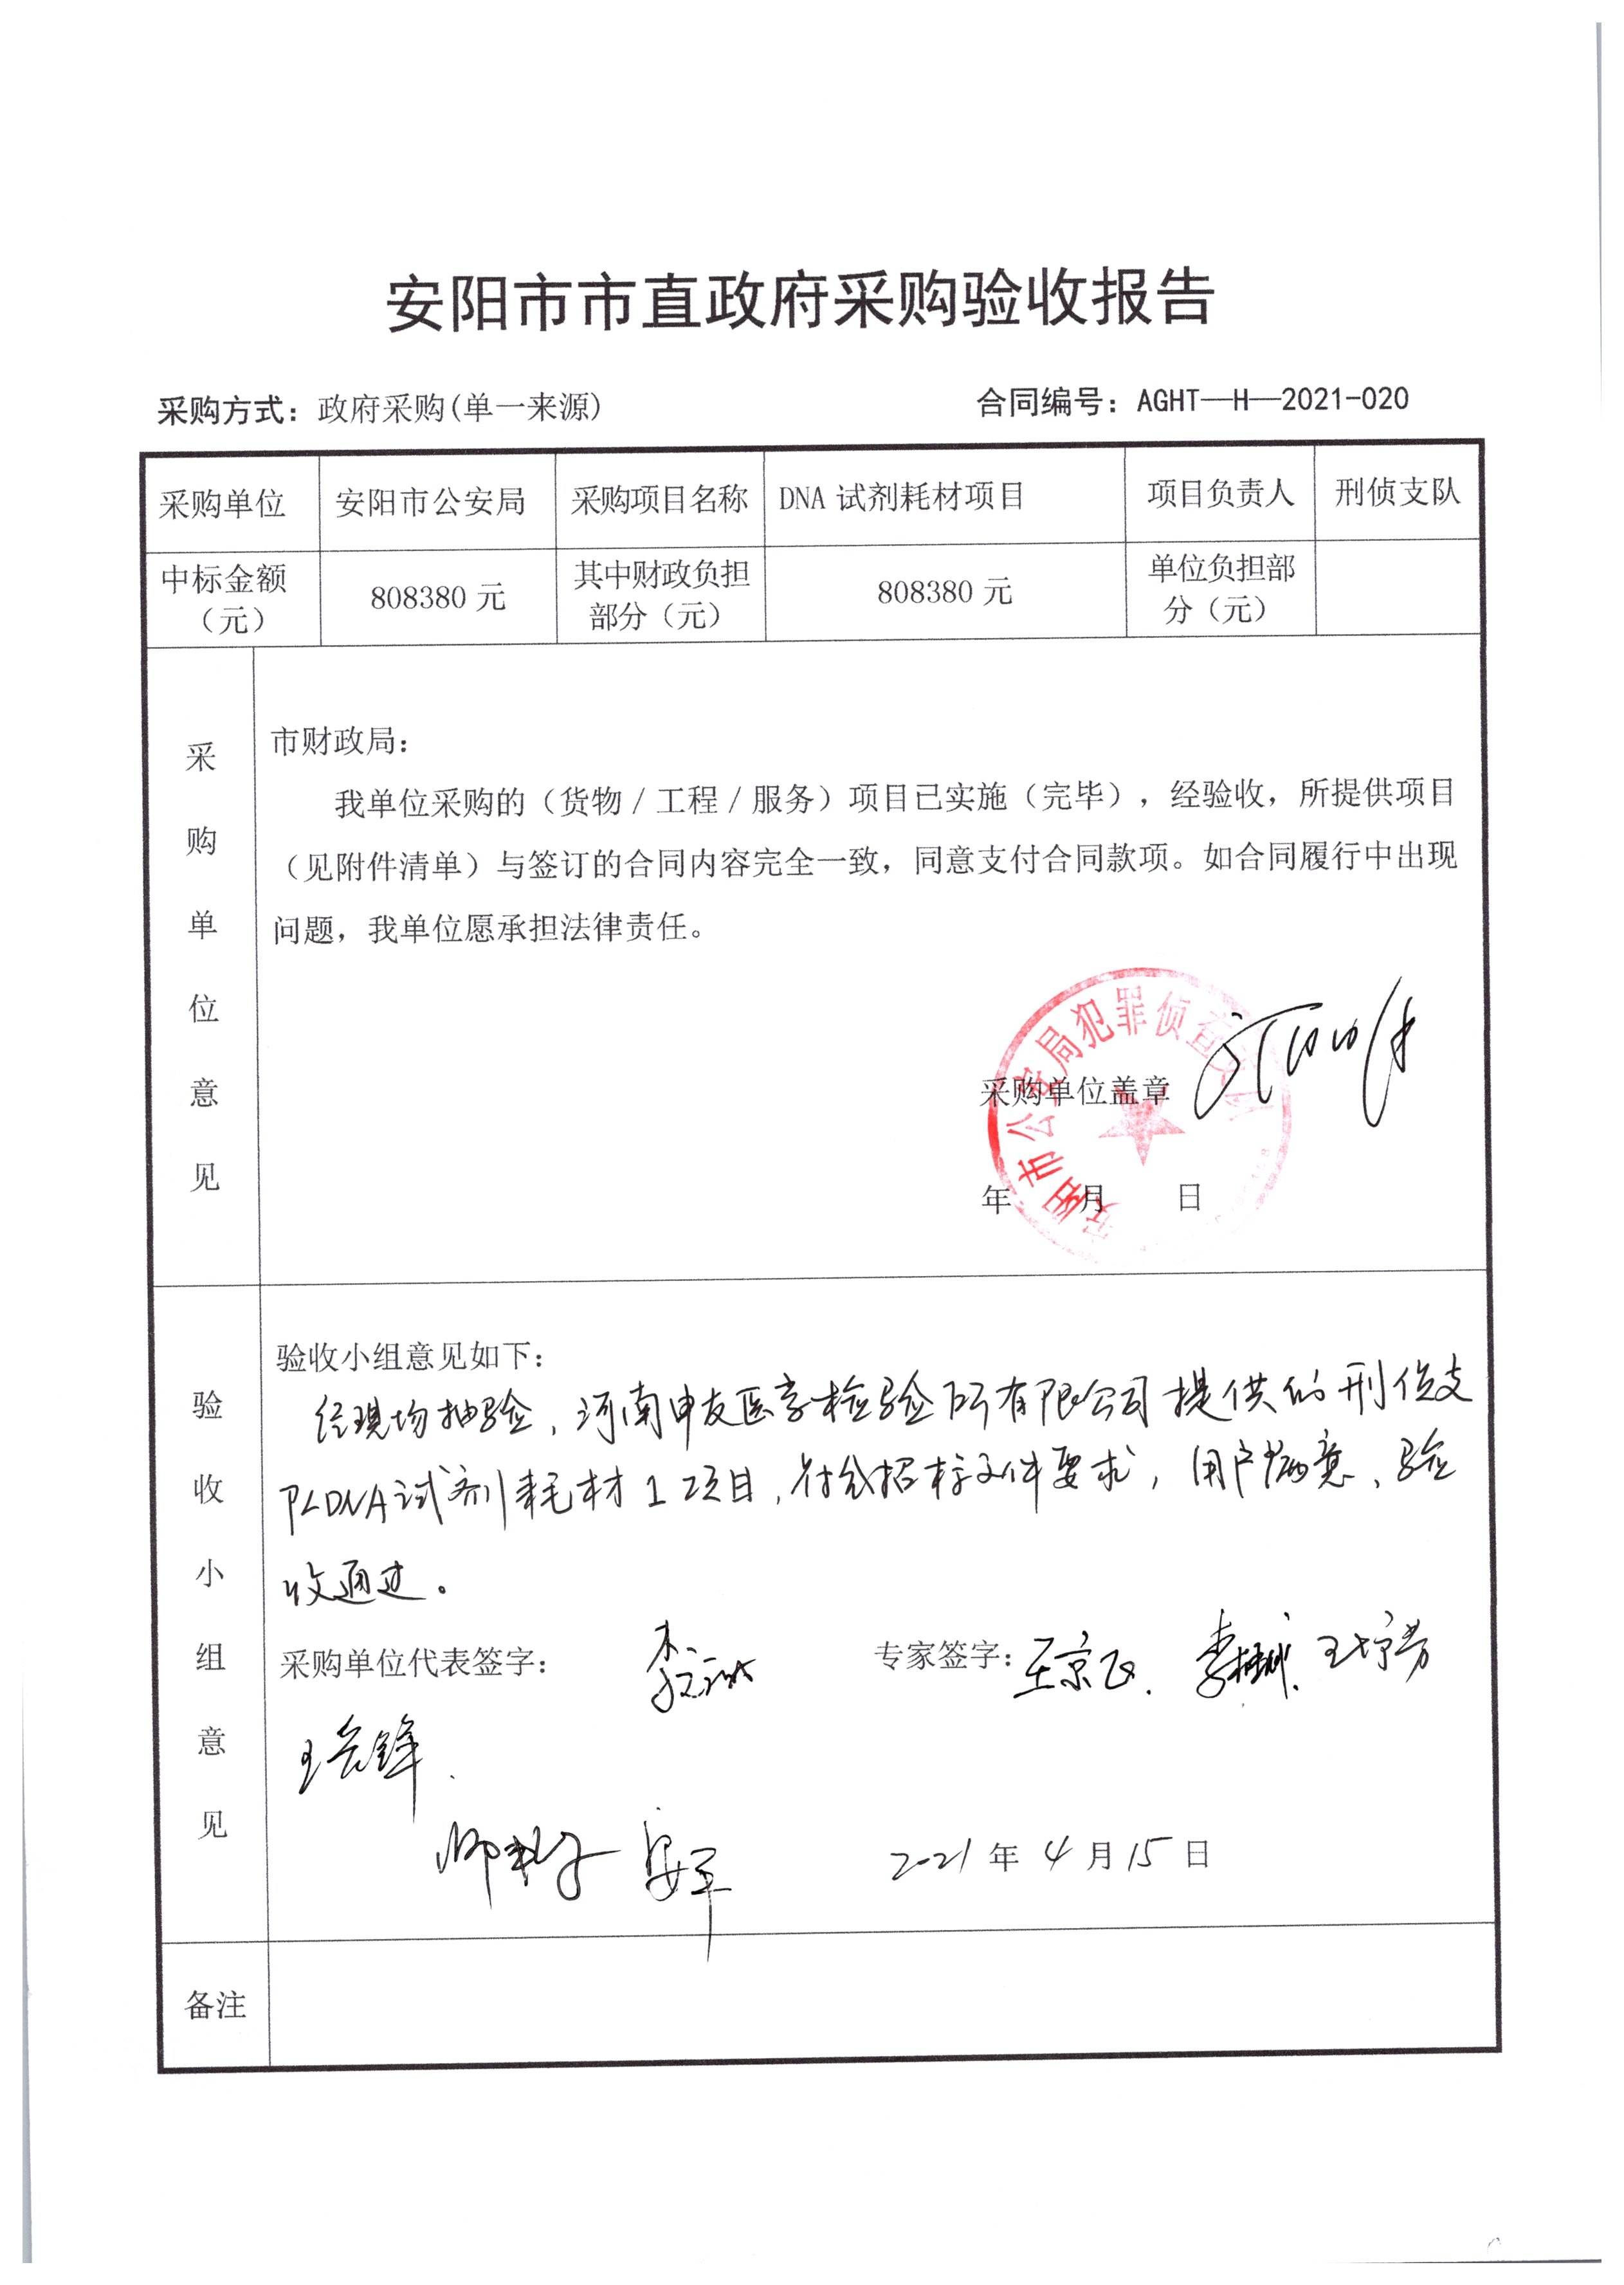 安阳市市直政府采购验收报告
采购方式：政府采购(单一来源)
合同编号：AGHT—H—2021-020
采购单位 安阳市公安局 采购项目名称 DNA 试剂耗材项目 项目负责人 刑侦支队
中标金额（元） 808380 元 其中财政负担部分（元） 808380 元 单位负担部分（元）
采购单位意见
市财政局：
我单位采购的（货物／工程／服务）项目已实施（完毕），经验收，所提供项目
（见附件清单）与签订的合同内容完全一致，同意支付合同款项。如合同履行中出现
问题，我单位愿承担法律责任。
安阳市公安局犯罪侦查支队
采购单位盖章
年 月 日
验收小组意见
验收小组意见如下：
经现场抽验，河南申友医学检验所有限公司提供的刑侦支
队DNA试剂耗材1项目，符合招标文件要求，用户满意，验
收通过。
采购单位代表签字：
专家签字：王京飞.
2021年4月15日
备注